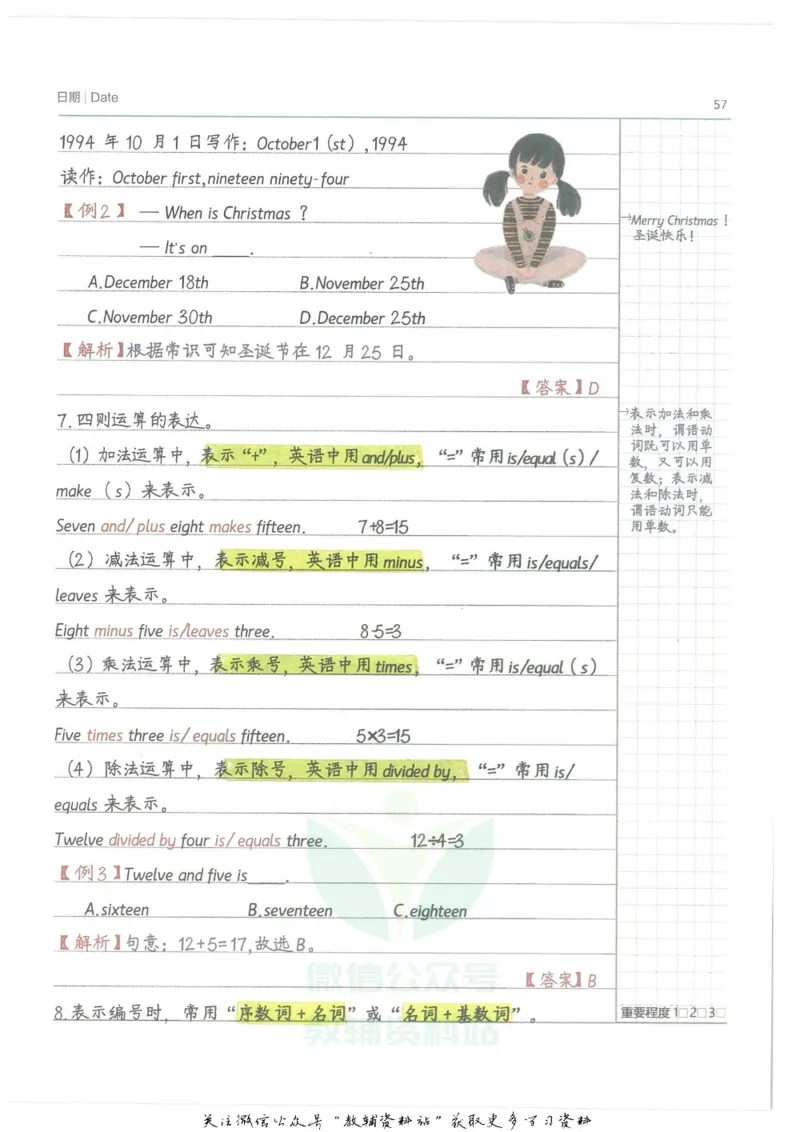 日期 | Date
57
1994 年 10 月 1 日写作：October1 (st) ,1994
读作：October first,nineteen ninety-four
【例2】 — When is Christmas ?
— It's on ____.
A.December 18th B.November 25th
C.November 30th D.December 25th
【解析】根据常识可知圣诞节在 12 月 25 日。
【答案】D
7. 四则运算的表达。
(1) 加法运算中，表示“+”，英语中用 and/plus，“=”常用 is/equal (s) /
make (s) 来表示。
Seven and/ plus eight makes fifteen. 7+8=15
(2) 减法运算中，表示减号，英语中用 minus，“=”常用 is/equals/
leaves 来表示。
Eight minus five is/leaves three. 8-5=3
(3) 乘法运算中，表示乘号，英语中用 times，“=”常用 is/equal (s)
来表示。
Five times three is/ equals fifteen. 5×3=15
(4) 除法运算中，表示除号，英语中用 divided by，“=”常用 is/
equals 来表示。
Twelve divided by four is/ equals three. 12÷4=3
【例3】Twelve and five is____.
A.sixteen B.seventeen C.eighteen
【解析】句意：12+5=17,故选 B。
【答案】B
8.表示编号时，常用“序数词+名词”或“名词+基数词”。
→Merry Christmas！
圣诞快乐！
→表示加法和乘
法时，谓语动
词既可以用单
数，又可以用
复数；表示减
法和除法时，
谓语动词只能
用单数。
重要程度 1□ 2□ 3□
微信公众号
教辅资料站
关注微信公众号“教辅资料站”获取更多学习资料